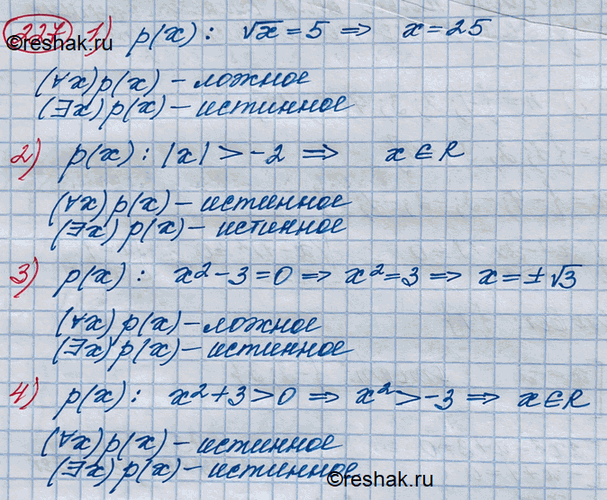 227 1) p(x): √x = 5 ⇒ x = 25
©reshak.ru
(∀x) p(x) – ложное
(∃x) p(x) – истинное
2) p(x): |x| > -2 ⇒ x ∈ R
(∀x) p(x) – истинное
(∃x) p(x) – истинное
3) p(x): x² - 3 = 0 ⇒ x² = 3 ⇒ x = ±√3
(∀x) p(x) – ложное
(∃x) p(x) – истинное
4) p(x): x² + 3 > 0 ⇒ x² > -3 ⇒ x ∈ R
(∀x) p(x) – истинное
(∃x) p(x) – истинное
©reshak.ru